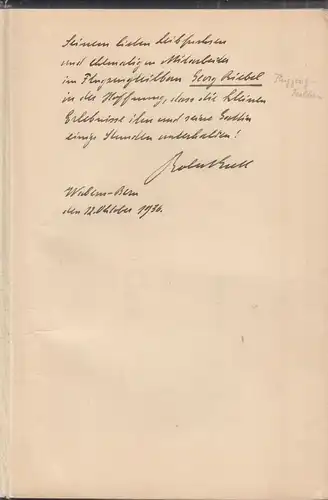 Seinem lieben Leibfuchsen
und ehemaligen Mitarbeiter
im Flugzeugbau Georg Riebel
in der Hoffnung, dass die kleinen
Erlebnisse ihm und seine Gattin
einige Stunden unterhalten!
Wabern-Bern
den 12. Oktober 1936.
Flugzeug-